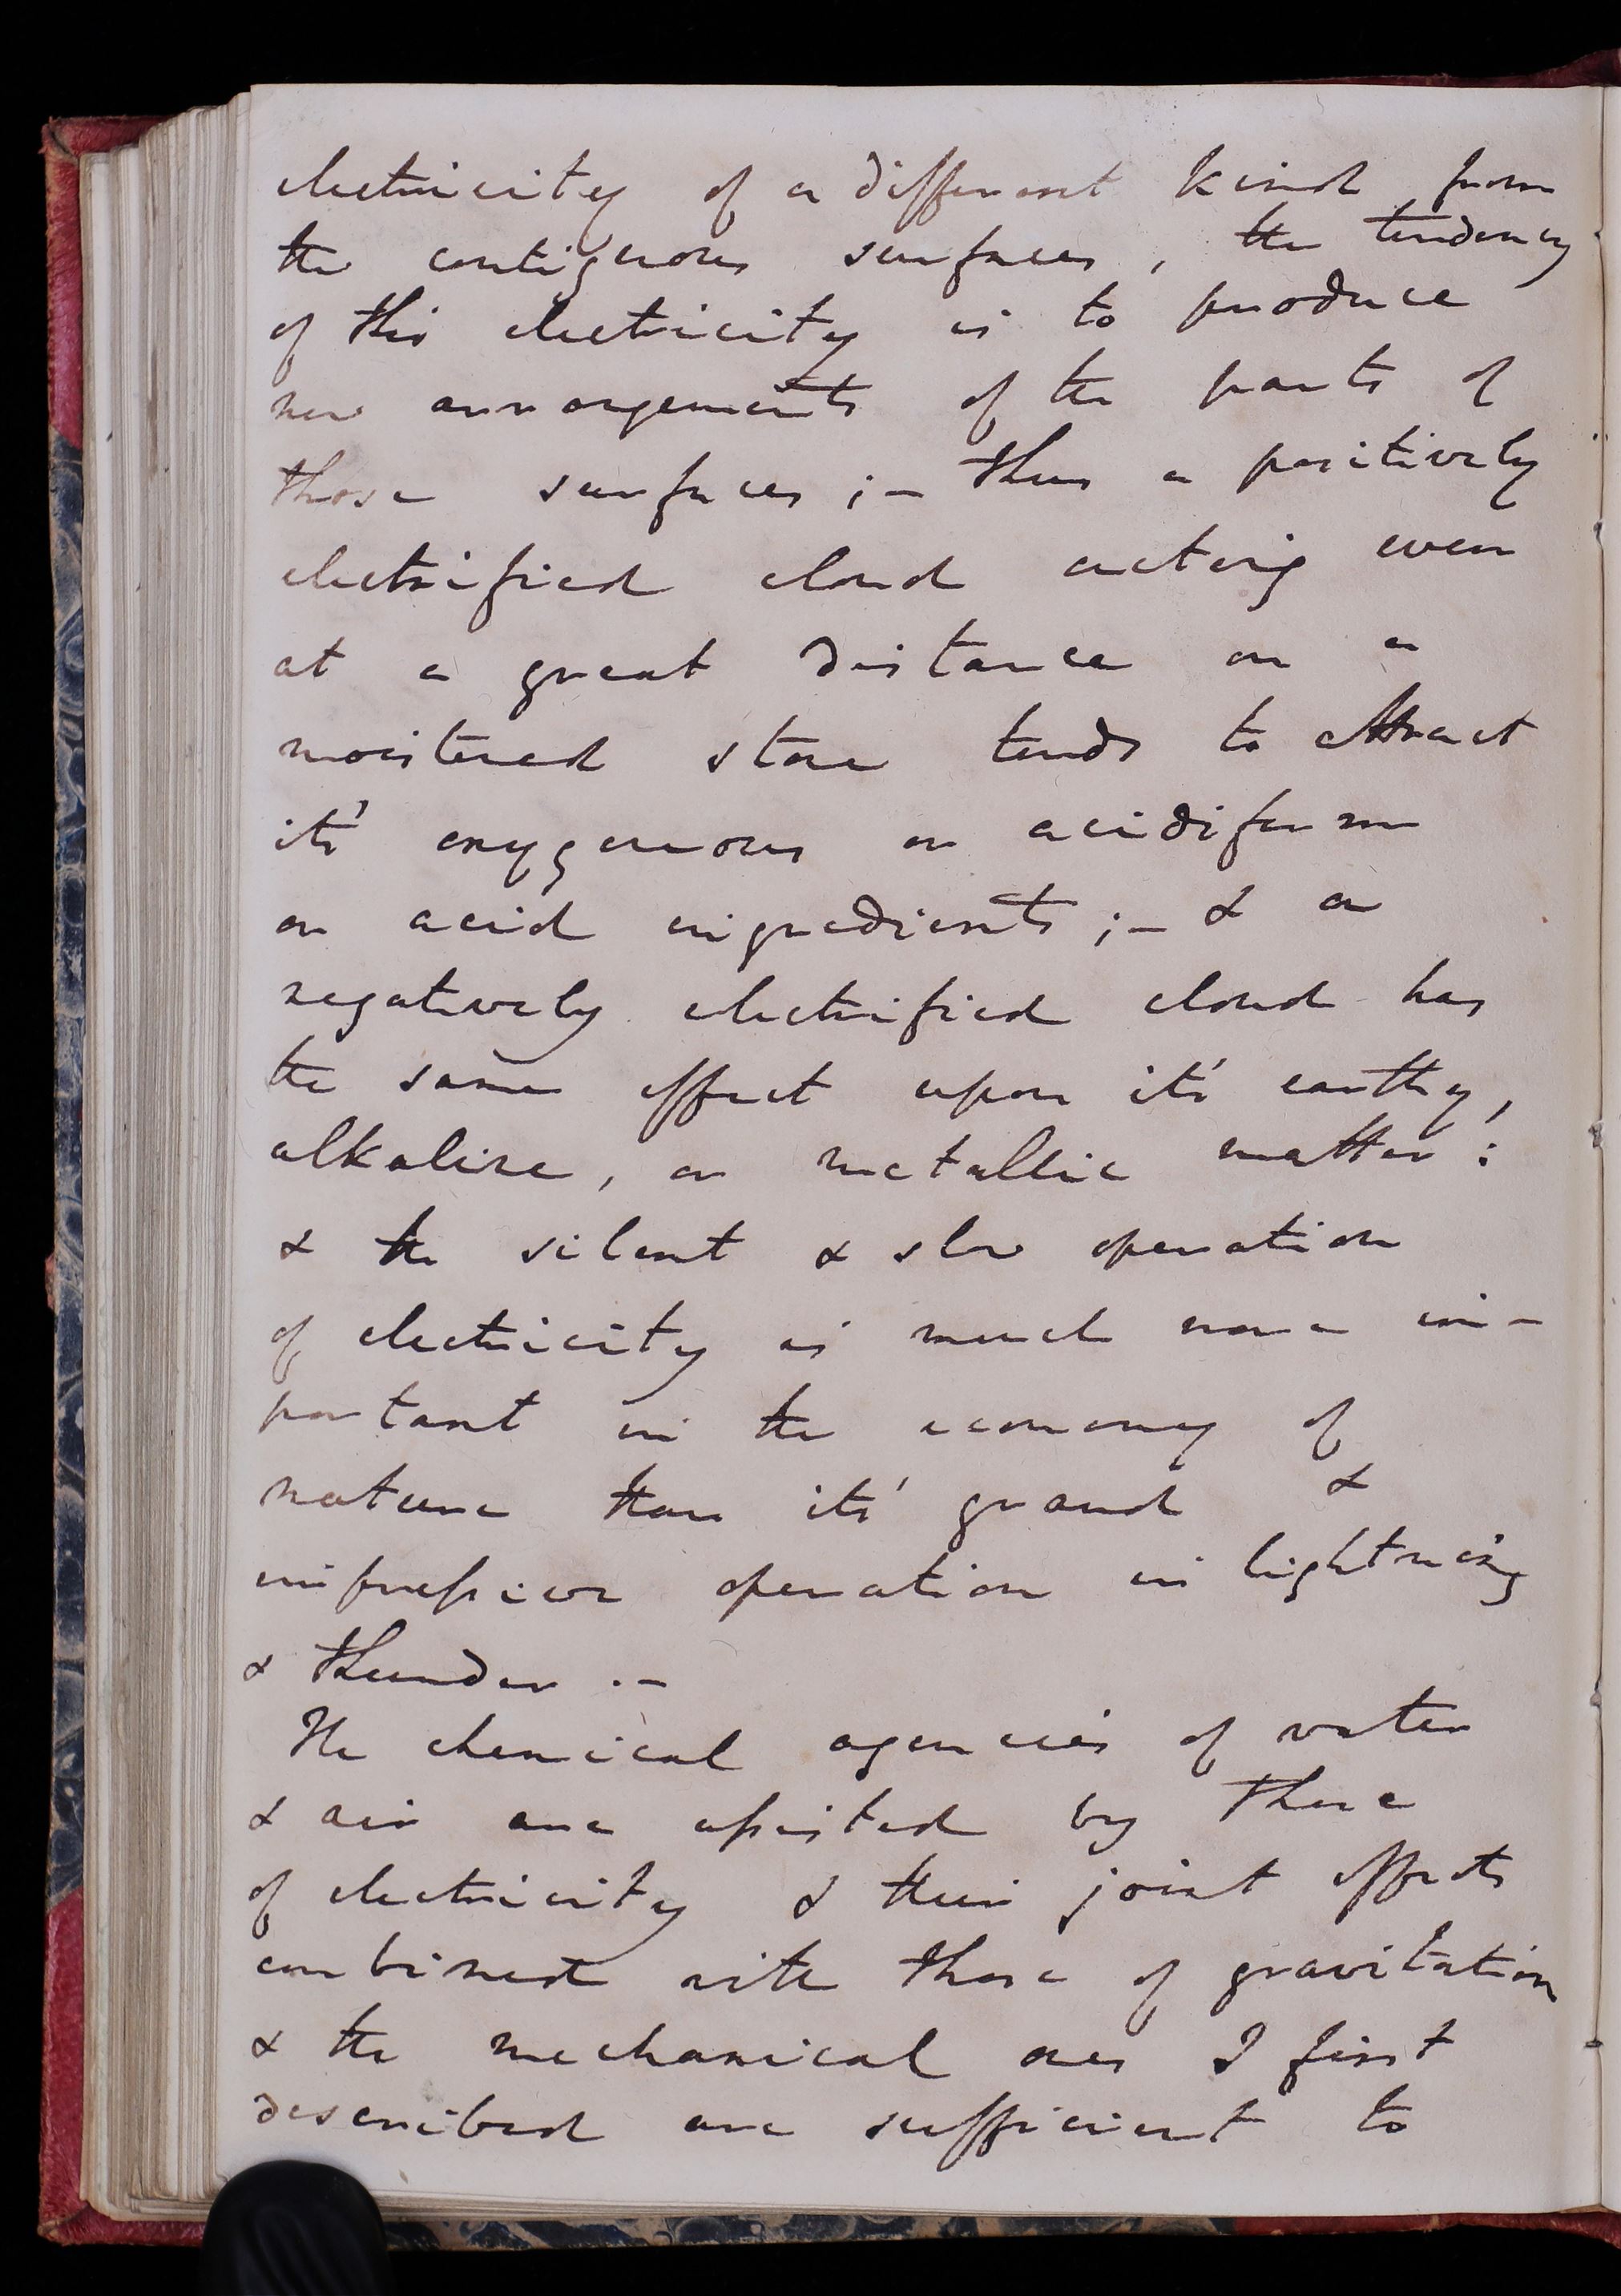 electricity of a different kind from
the contiguous surfaces, the tendency
of this electricity is to produce
new arrangements of the parts of
those surfaces;– thus a positively
electrified cloud acting even
at a great distance on a
moistened stone tends to attract
it's oxygenous or acidiform
or acid ingredients;– & a
negatively electrified cloud has
the same effect upon it's earthy,
alkaline, or metallic matter:
& the silent & slow operation
of electricity is much more im-
portant in the economy of
nature than it's grand &
impressive operation in lightning
& thunder.–
The chemical agencies of water
& air are assisted by those
of electricity & their joint effects
combined with those of gravitation
& the mechanical ones I first
described are sufficient to